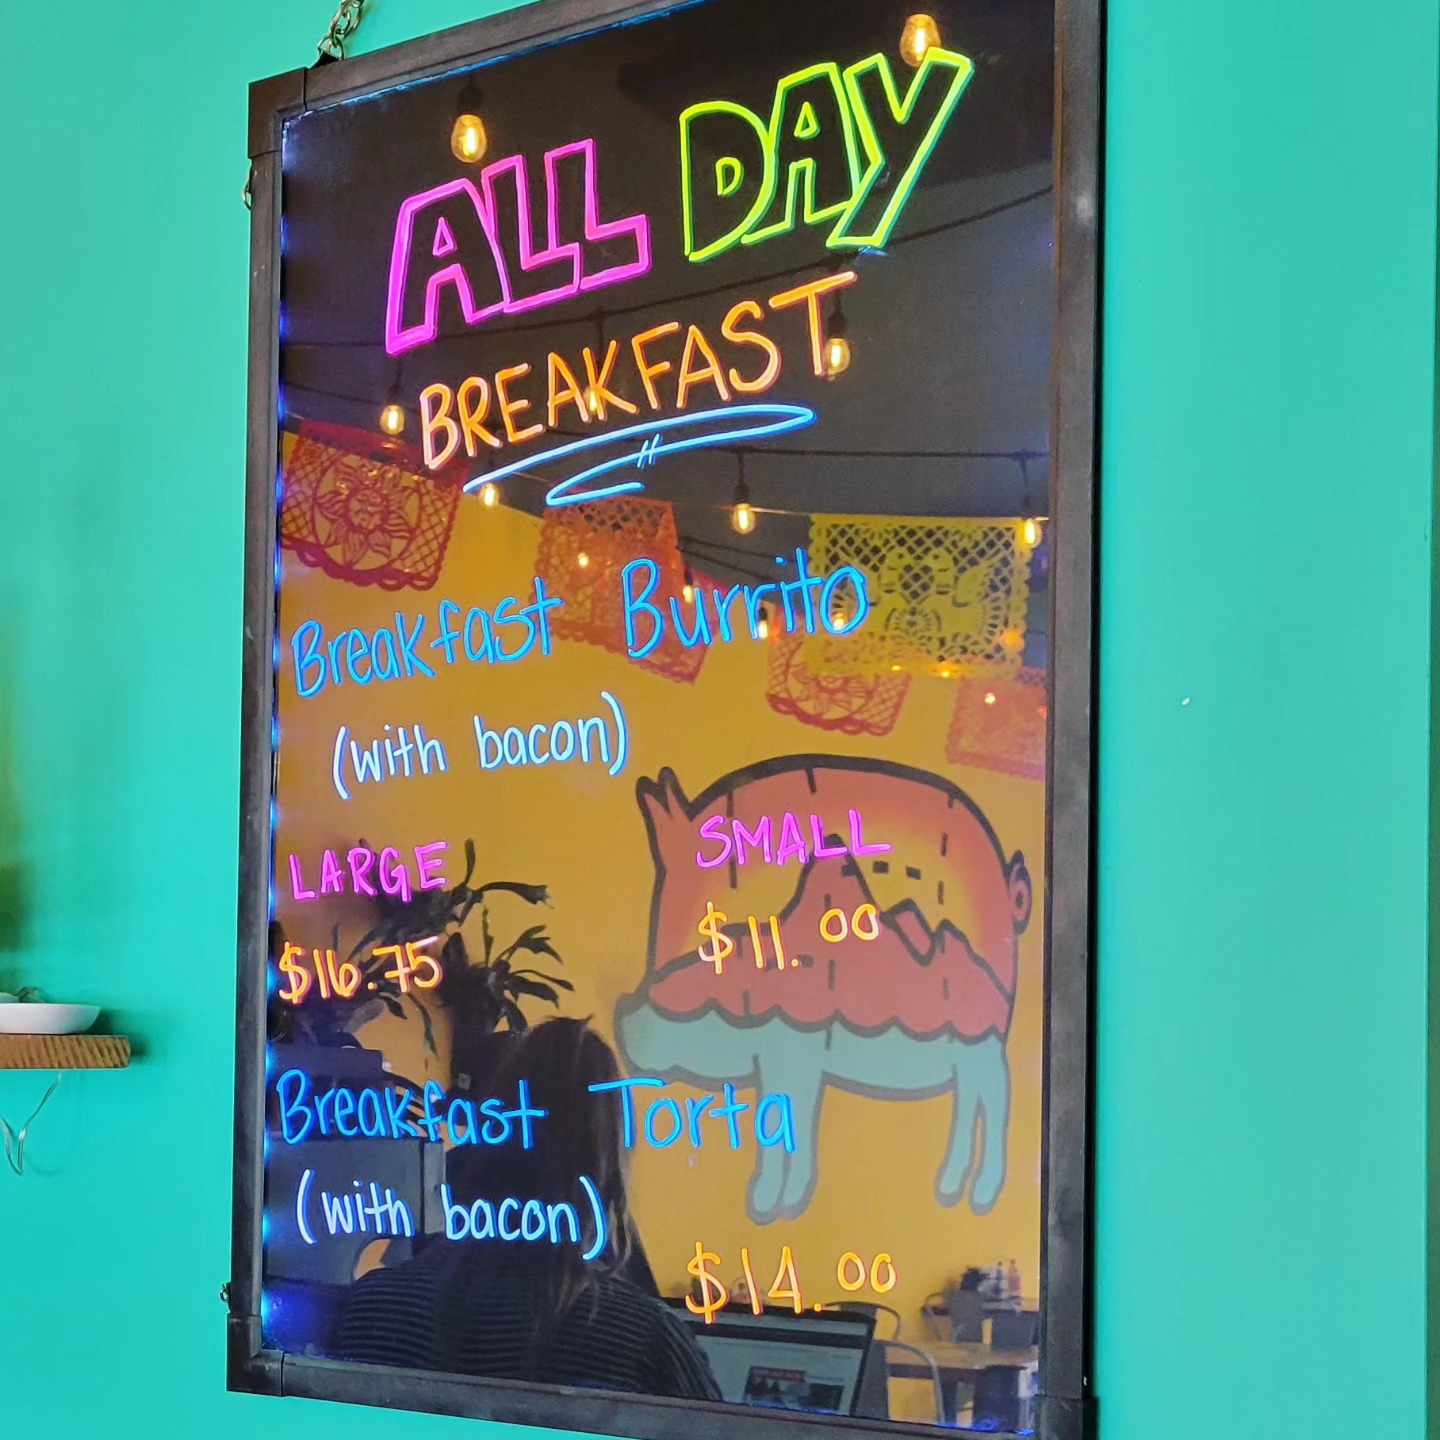 ALL DAY
BREAKFAST
Breakfast Burrito
(with bacon)
LARGE SMALL
$16.75 $11.00
Breakfast Torta
(with bacon)
$14.00